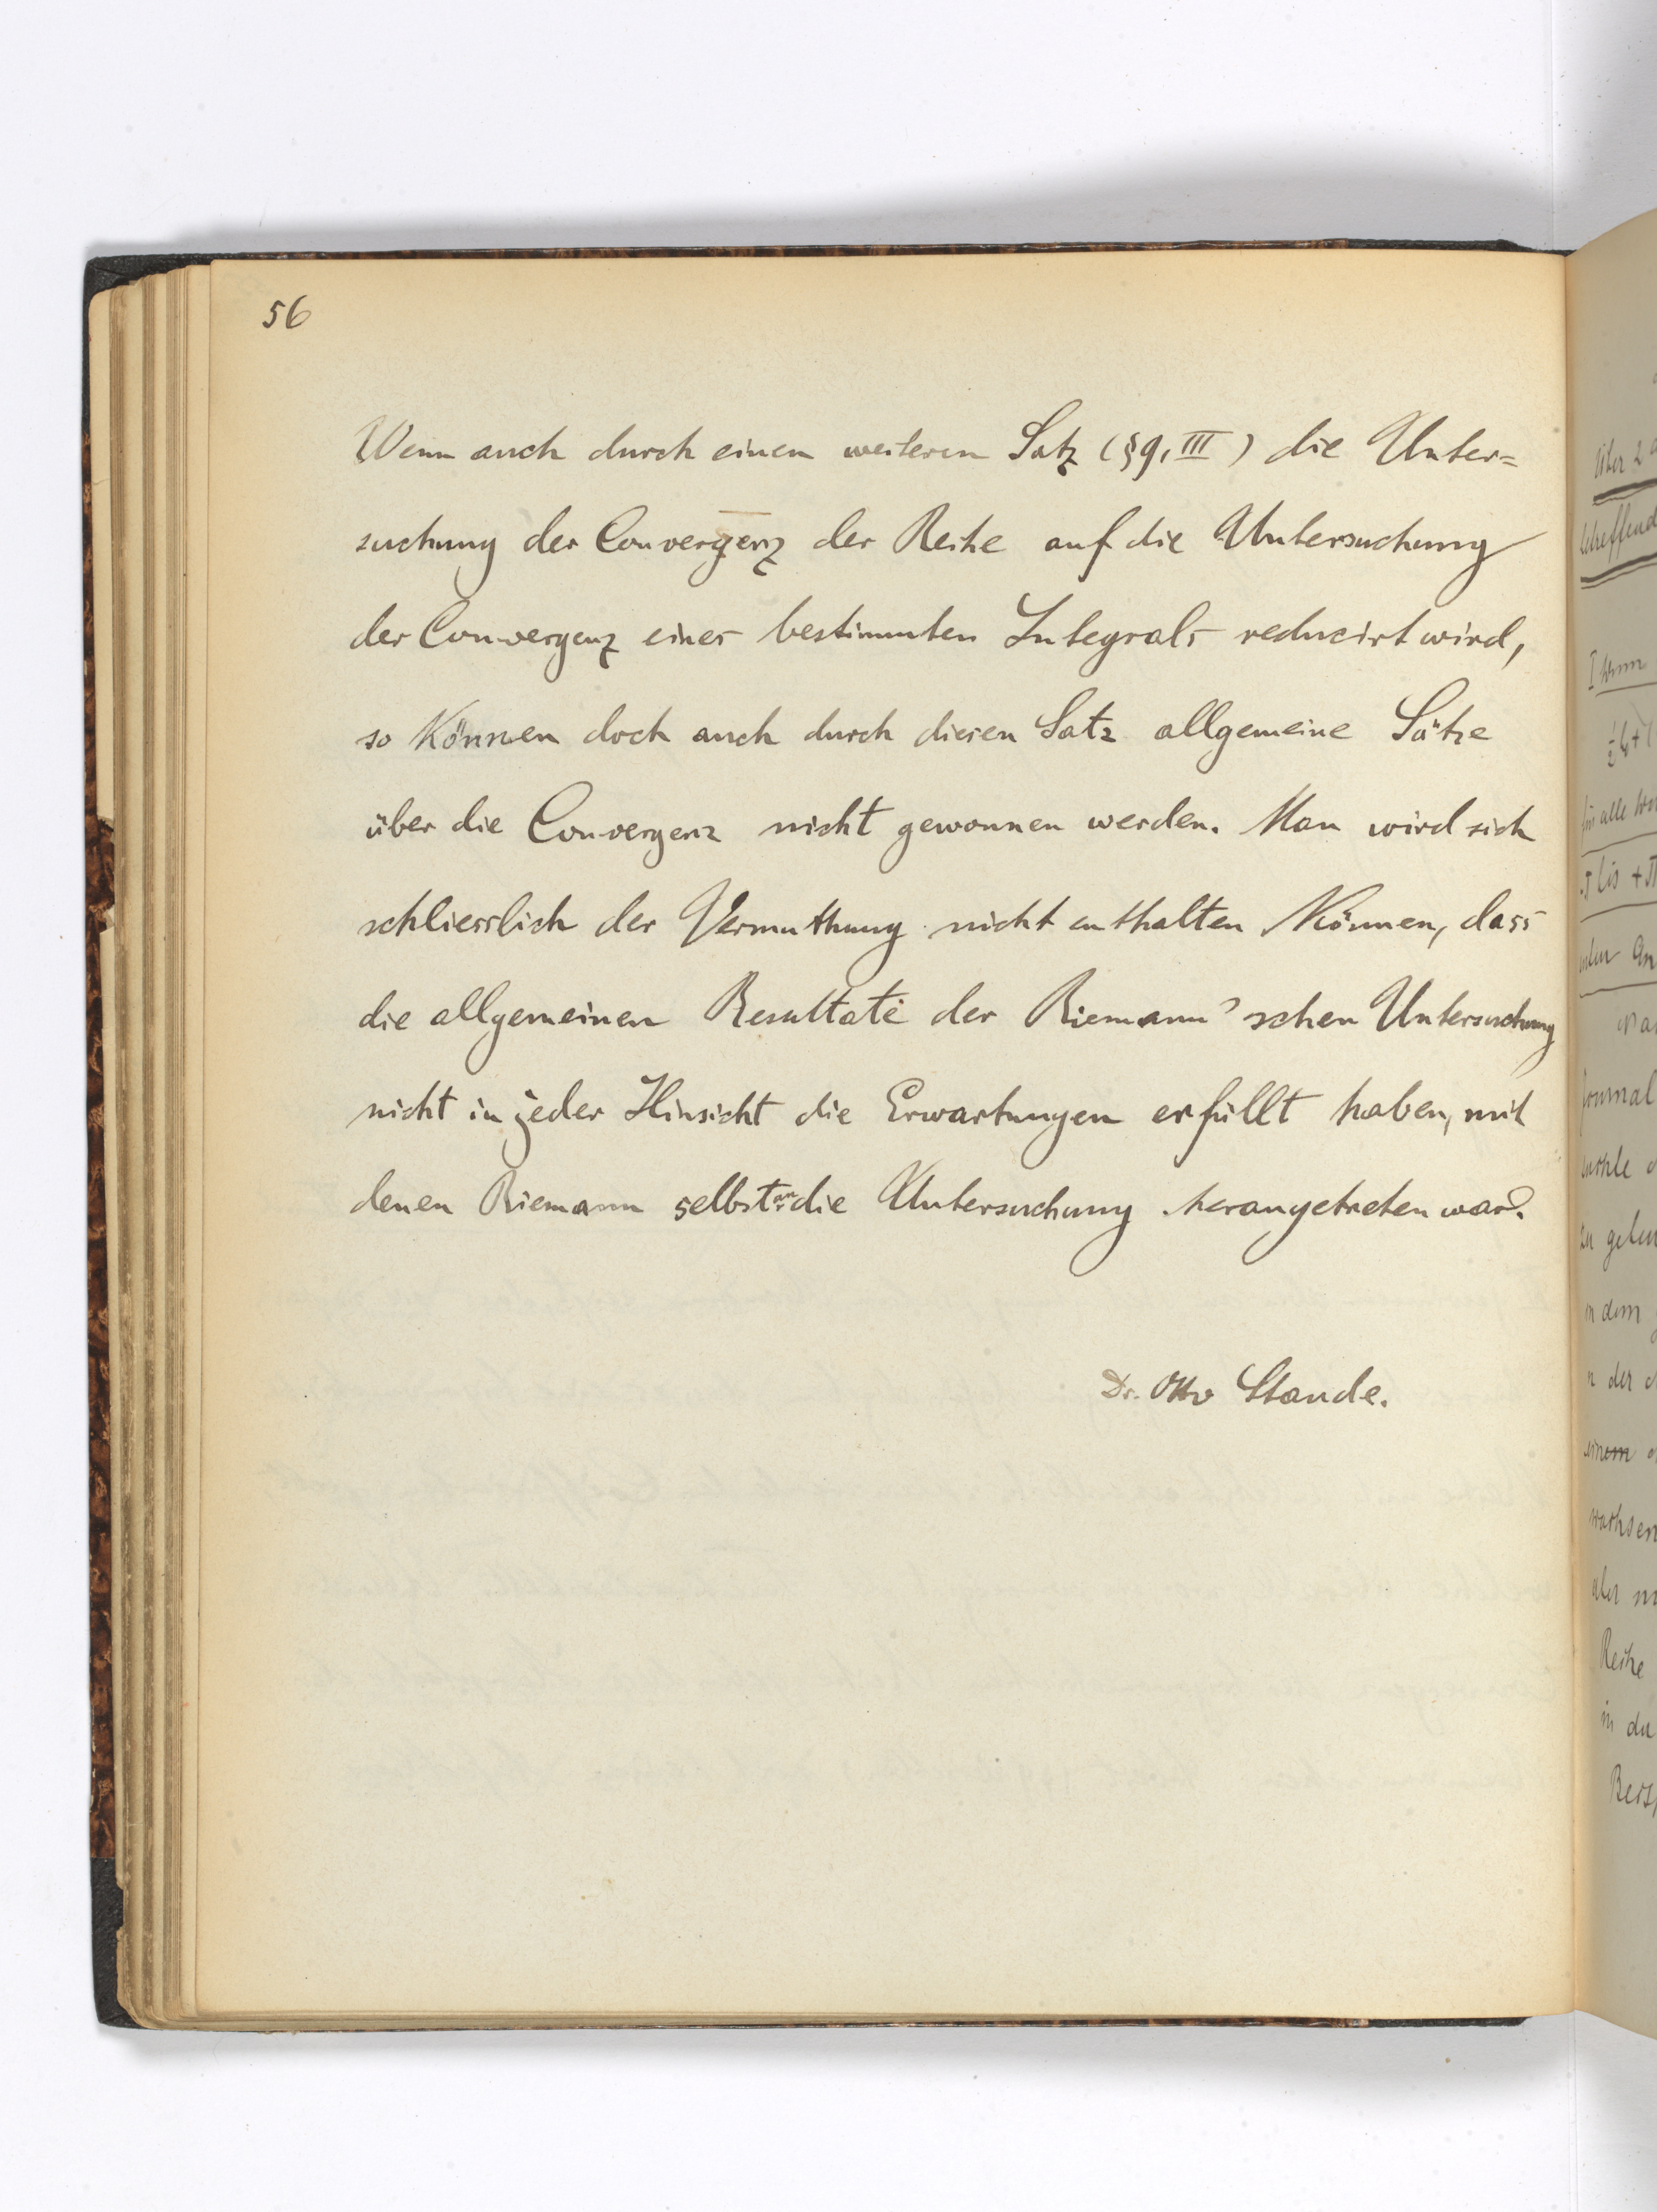 56
Wenn auch durch einen weiteren Satz (§9, III) die Unter=
suchung der Convergenz der Reihe auf die Untersuchung
der Convergenz eines bestimmten Integrals reducirt wird,
so können doch auch durch diesen Satz allgemeine Sätze
über die Convergenz nicht gewonnen werden. Man wird sich
schliesslich der Vermuthung nicht enthalten können, dass
die allgemeinen Resultate der Riemann'schen Untersuchung
nicht in jeder Hinsicht die Erwartungen erfüllt haben, mit
denen Riemann selbst an die Untersuchung herangetreten war.
Dr. Otto Staude.
über 2
betreffend
I wenn
für alle
bis + π
Journal
zu geben
in dem
n der
einem
wachsen
aber
Reihe
in der